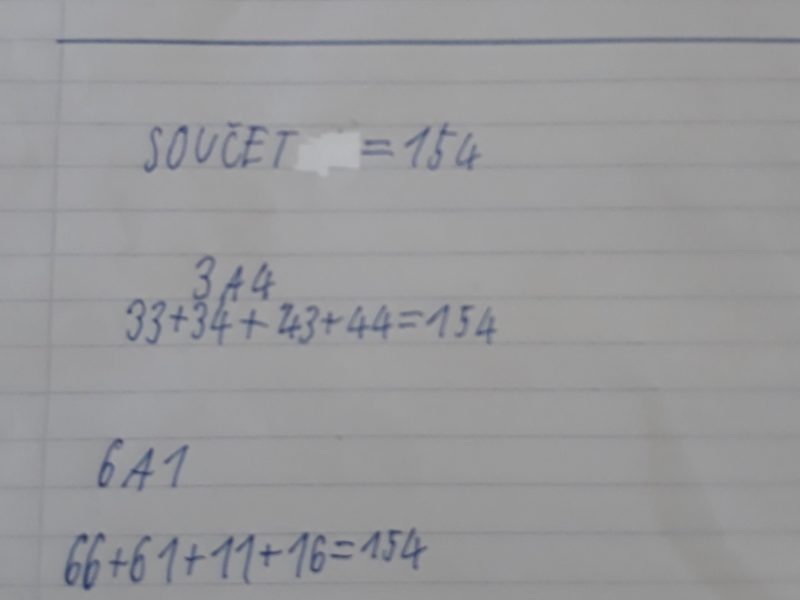 SOUČET =154
3A4
33+34+43+44=154
6A1
66+61+11+16=154